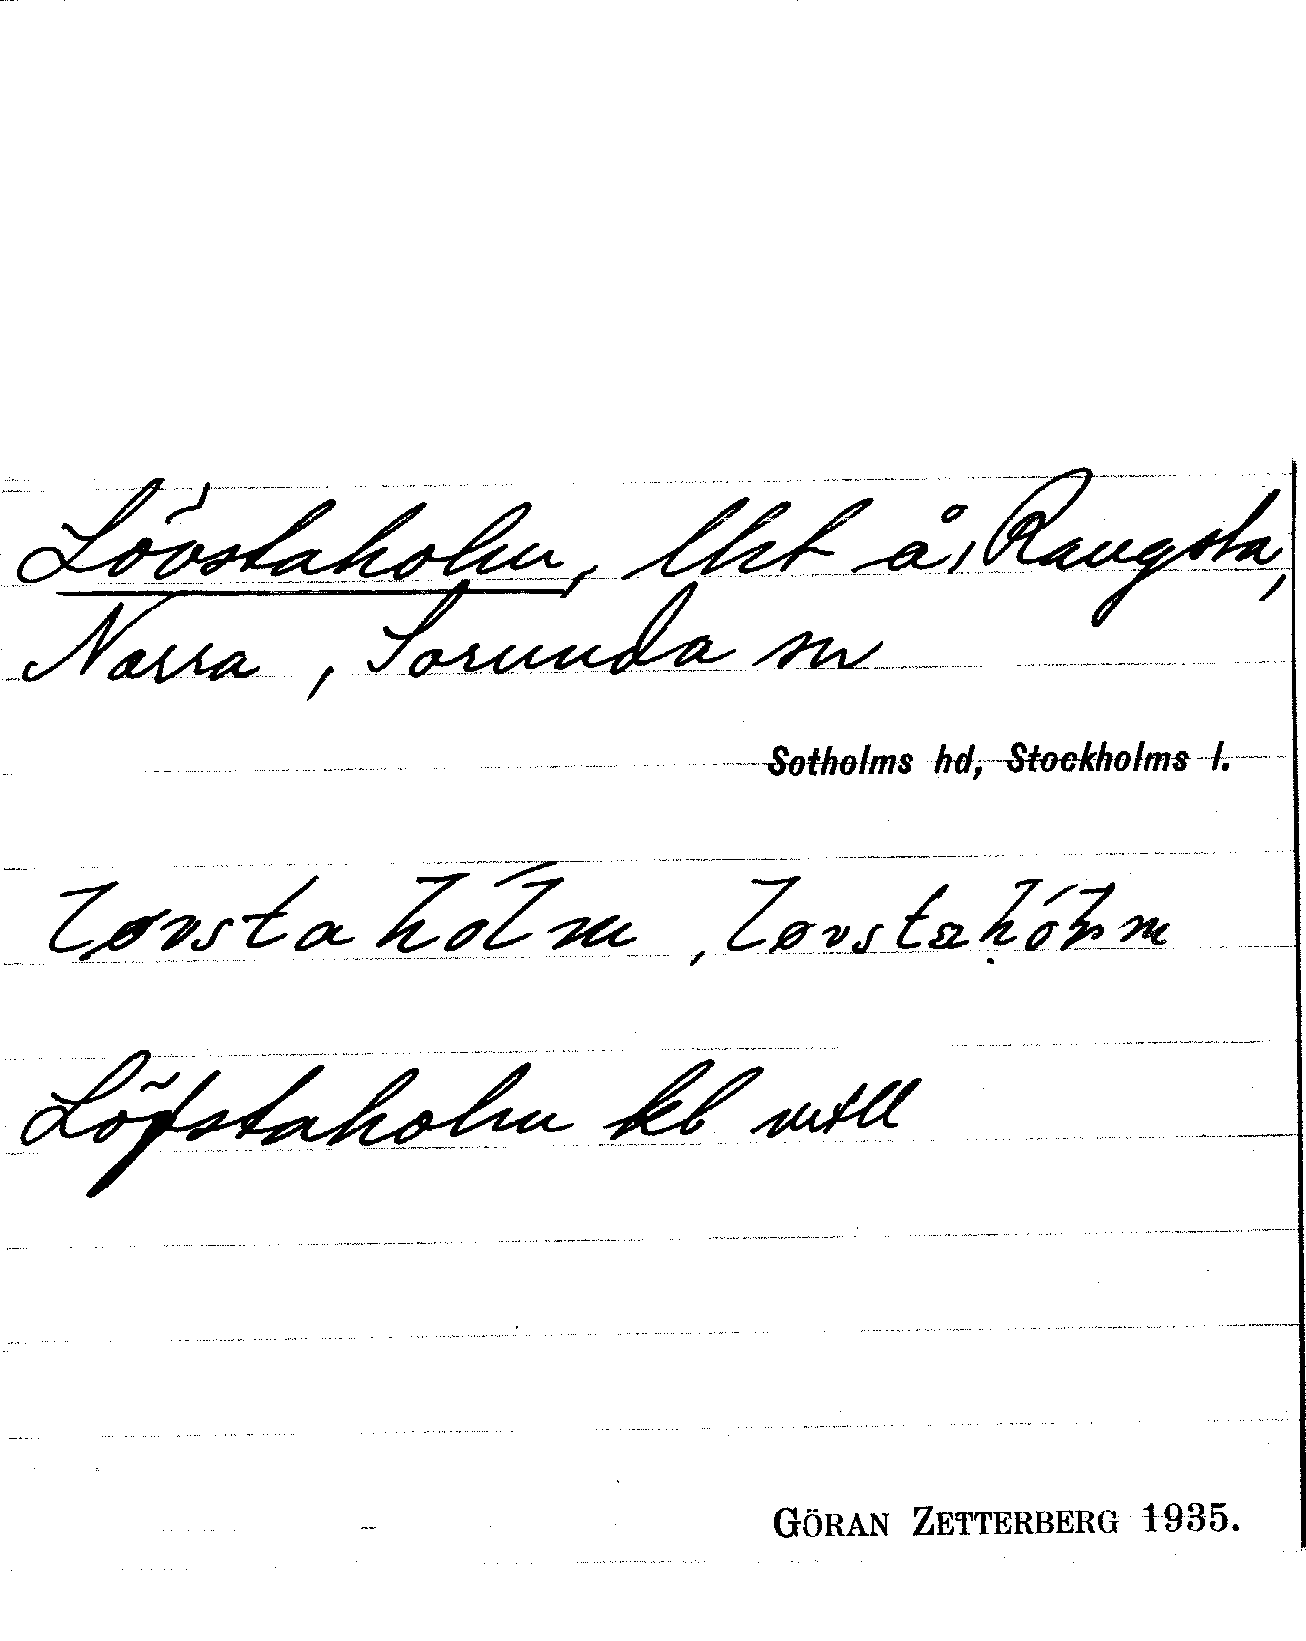 Lövstaholm, lht å, Rangsta,
Norra, Sorunda sn
Sotholms hd, Stockholms l.
Løvstahólm, løvstahólm
Löfstaholm kb
GÖRAN ZETTERBERG 1935.